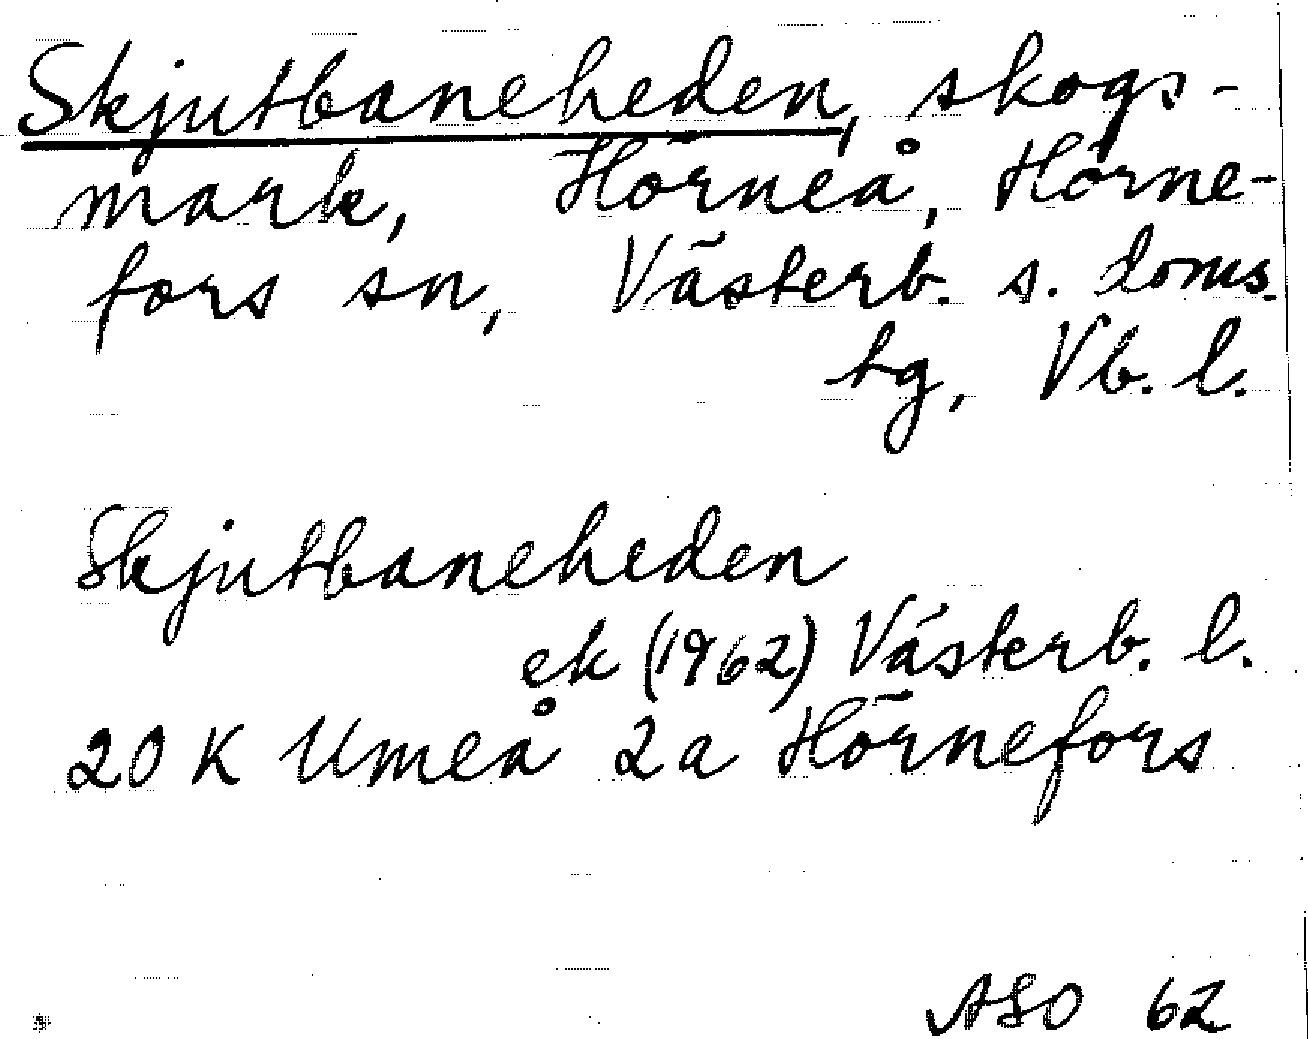 Skjutbaneheden, skogs-
mark, Hörneå, Hörne-
fors sn, Västerb. s. doms.
hg, Vb. l.
Skjutbaneheden
ek (1962) Västerb. l.
20 K Umeå 2a Hörnefors
ASO 62